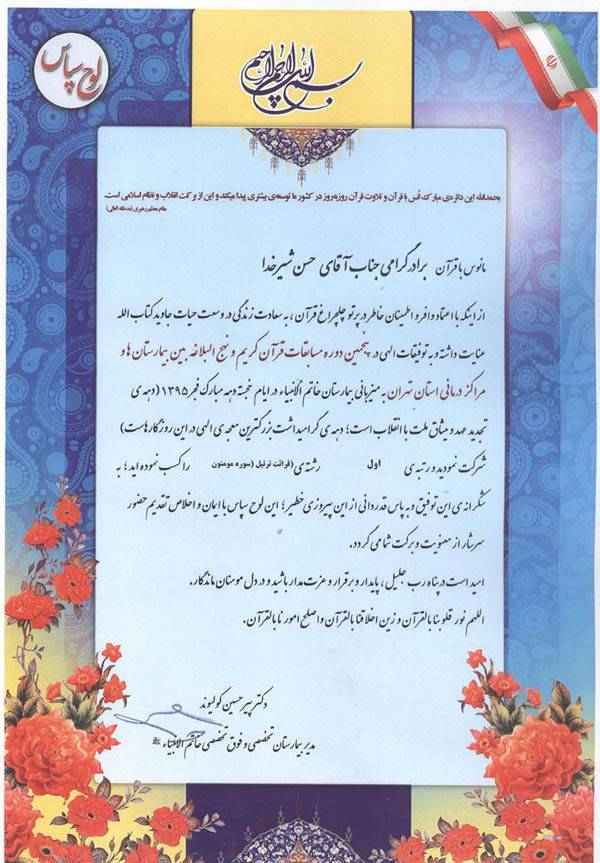 لوح سپاس
بسم الله الرحمن الرحیم
بحمدالله این دائره‌ی مبارک اُنس با قرآن و تلاوت قرآن روزبه‌روز در کشور ما توسعه‌ی بیشتری پیدا میکند و این از برکت انقلاب و نظام اسلامی است.
مقام معظم رهبری (مدظله العالی)
مانوس با قرآن برادر گرامی جناب آقای حسن شیرخدا
از اینکه با اعتماد وافر و اطمینان خاطر در پرتو چلچراغ قرآن، به سعادت زندگی در وسعت حیات جاوید کتاب الله
عنایت داشته و به توفیقات الهی در پنجمین دوره مسابقات قرآن کریم و نهج البلاغه بین بیمارستان ها و
مراکز درمانی استان تهران به میزبانی بیمارستان خاتم الانبیاء در ایام خجسته دهه مبارک فجر ۱۳۹۵ (دهه‌ی
تجدید عهد و میثاق ملت با انقلاب است؛ دهه‌ی گرامیداشت بزرگترین معجزه‌ی الهی در این روزگارهاست)
شرکت نمودید و رتبه‌ی اول رشته‌ی (قرائت ترتیل (سوره مومنون را کسب نموده اید؛ به
شکرانه‌ی این توفیق و به پاس قدردانی از این پیروزی خطیر؛ این لوح سپاس با ایمان و اخلاص تقدیم حضور
سرشار از معنویت و برکت شما می گردد.
امید است در پناه رب جلیل، پایدار و برقرار و عزت مدار باشید و در دل مومنان ماندگار.
اللهم نور قلوبنا بالقرآن و زین اخلاقنا بالقرآن و اصلح امورنا بالقرآن.
دکتر پیرحسین کولیوند
مدیر بیمارستان تخصصی و فوق تخصصی خاتم الانبیاء